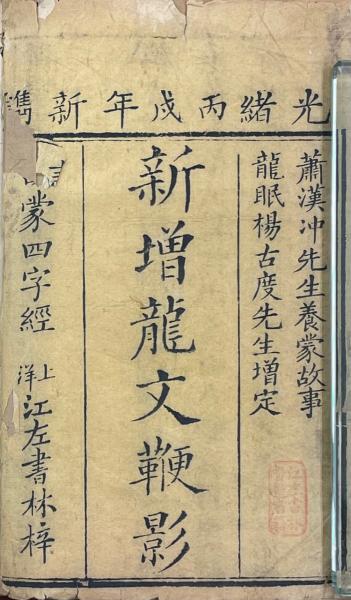 光緒丙戌年新鐫
蕭漢冲先生養蒙故事
龍眠楊古度先生增定
新增龍文鞭影
蒙四字經
上洋江左書林梓